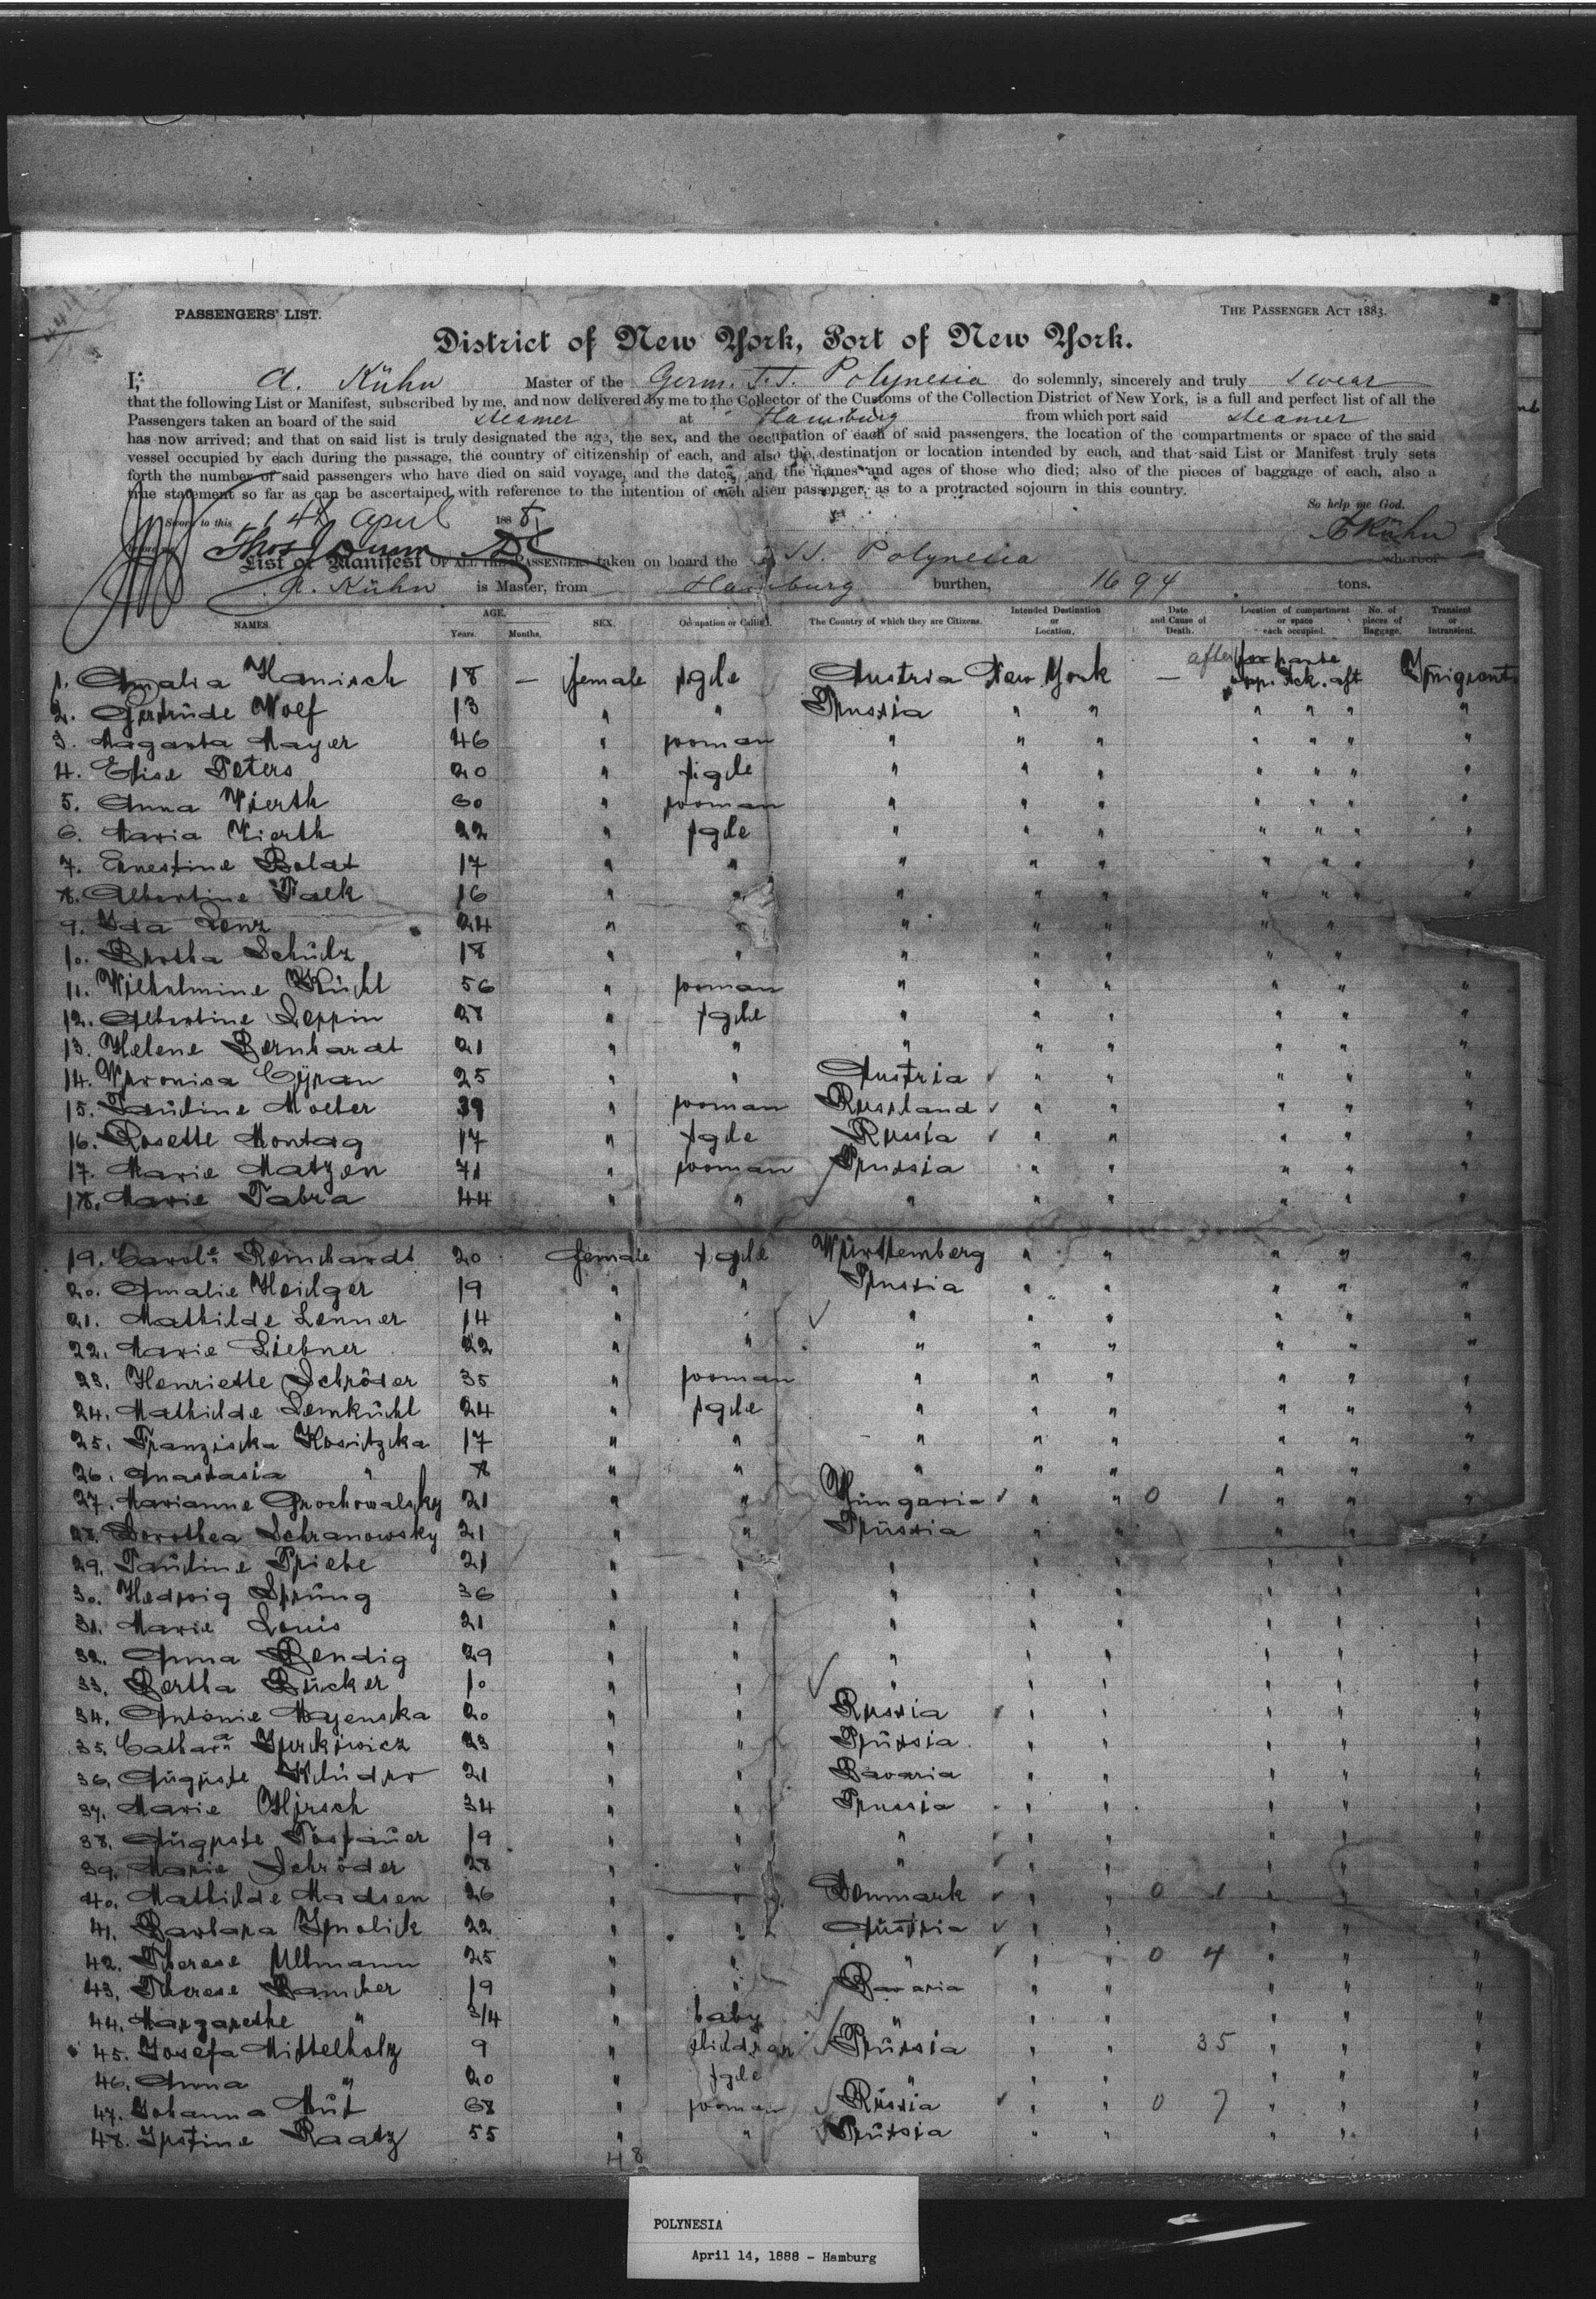 PASSENGERS' LIST. THE PASSENGER ACT 1883.
District of New York, Port of New York.
I, A. Kühn Master of the Germ. S.S. Polynesia do solemnly, sincerely and truly swear
that the following List or Manifest, subscribed by me, and now delivered by me to the Collector of the Customs of the Collection District of New York, is a full and perfect list of all the
Passengers taken an board of the said steamer at Hamburg from which port said steamer
has now arrived; and that on said list is truly designated the age, the sex, and the occupation of each of said passengers, the location of the compartments or space of the said
vessel occupied by each during the passage, the country of citizenship of each, and also the destination or location intended by each, and that said List or Manifest truly sets
forth the number of said passengers who have died on said voyage, and the dates, and the names and ages of those who died; also of the pieces of baggage of each, also a
true statement so far as can be ascertained with reference to the intention of each alien passenger, as to a protracted sojourn in this country.
So help me God.
Sworn to this 14th April 188
A Kühn
List or Manifest OF ALL THE PASSENGERS taken on board the S.S. Polynesia whereof
A. Kühn is Master, from Hamburg burthen, 1694 tons.
NAMES. AGE. Years. Months. SEX. Occupation or Calling. The Country of which they are Citizens. Intended Destination or Location. Date and Cause of Death. Location of compartment or space each occupied. No. of pieces of Baggage. Transient or Intransient.
1. Amalia Hanisch 18 — female sgle Austria New York — aft
2. Gertrude Wolf 13 " " Prussia " " " " " "
3. Mayer 46 " woman " " " " " " "
4. Elise Peters 20 " sigle " " " " " " "
5. Anna Vierth 60 " woman " " " " " " "
6. Maria Vierth 22 " sgle " " " " " " "
7. Ernestine Bolat 17 " " " " " " " " "
8. Albertine Falk 16 " " " " " " " " "
9. Ida Lenz 24 " " " " " " " "
10. Bertha Schülz 18 " " " " " " " "
11. Wilhelmine Kühl 56 " woman " " " " " "
12. Albertine Leppin 28 " sgle " " " " " "
13. Helene Bernhardt 21 " " " " " " " "
14. Veronica Cyran 25 " " Austria " " " " "
15. Pauline Moeter 39 " woman Russland " " " " "
16. Rosette Montag 17 " sgle Russia " " " " "
17. Marie Matzen 71 " woman Prussia " " " " "
18. Marie Fabra 44 " " " " " " " "
19. Reinhardt 20 female sgle Württemberg " " " " "
20. Amalie Heidger 19 " " Prussia " " " " "
21. Mathilde Lenner 14 " " " " " " " "
22. Marie Liebner 22 " " " " " " " "
23. Henriette Schröder 35 " woman " " " " " "
24. Mathilde Lemkühl 24 " sgle " " " " " "
25. Franziska Kositzka 17 " " " " " " " "
26. Anastasia " 8 " " " " " " " "
27. Marianne Grochowalsky 21 " " Hungaria " " 0 1 " " "
28. Dorothea Schranowsky 21 " " Prüssia " " " " "
29. Pauline Priebe 21 " " " " " " " "
30. Hedwig Sprüng 36 " " " " " " " "
31. Marie Louis 21 " " " " " " " "
32. Anna Bendig 29 " " " " " " " "
33. Bertha Bücker 10 " " " " " " " "
34. Antonie Majenska 20 " " Russia " " " " "
35. 23 " " Prüssia " " " " "
36. Auguste 21 " " Bavaria " " " " "
37. Marie Hirsch 34 " " Prussia " " " " "
38. Auguste 19 " " " " " " " "
39. Marie Schröder 28 " " " " " " " "
40. Mathilde Madsen 26 " " Denmark " " 0 1 " " "
41. Barbara 22 " " Austria " " " " "
42. Therese Ullmann 25 " " " " " 0 4 " " "
43. Therese 19 " " Bavaria " " " " "
44. Margarethe " 3/4 " baby " " " " " "
45. Josefa Mittelholz 9 " children Prüssia " " 35 " " "
46. Anna " 20 " sgle " " " " " "
47. Johanna Müt 68 " woman Rüssia " " 0 7 " " "
48. Justine Raatz 55 " " Prüssia " " " " "
48
POLYNESIA
April 14, 1888 - Hamburg